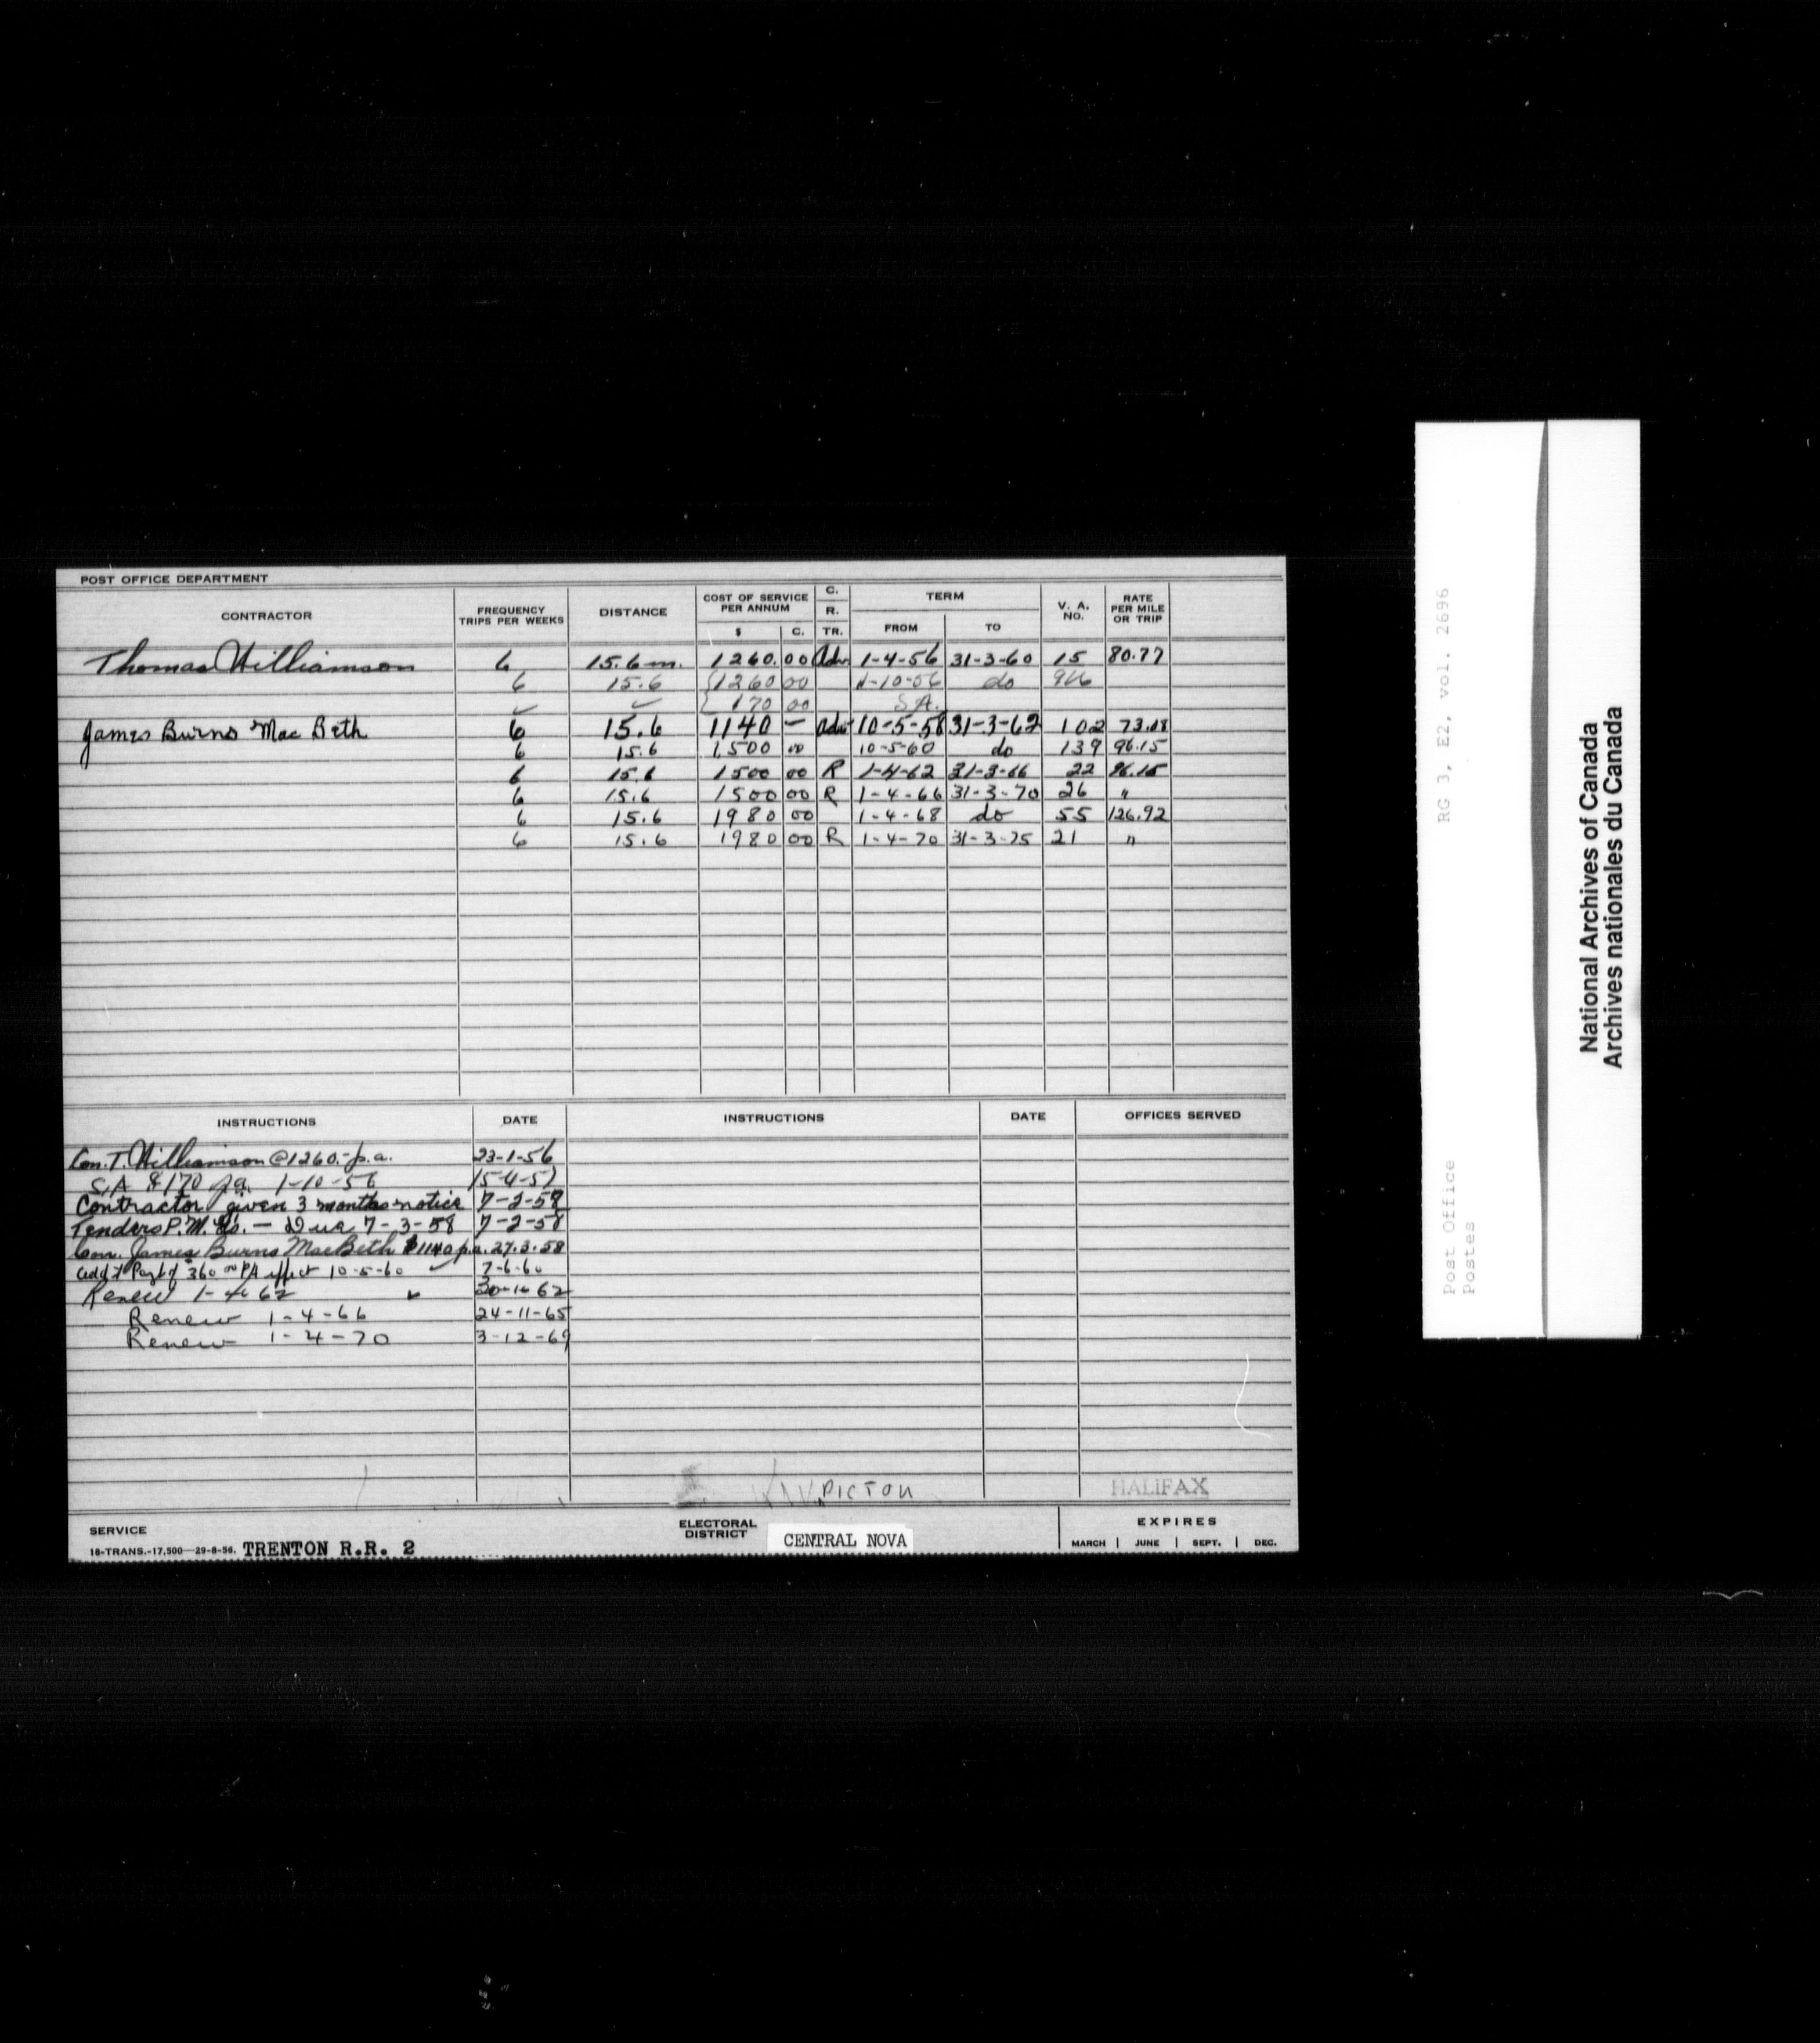 POST OFFICE DEPARTMENT
CONTRACTOR FREQUENCY TRIPS PER WEEKS DISTANCE COST OF SERVICE PER ANNUM $ C. C. R. TR. TERM FROM TO V. A. NO. RATE PER MILE OR TRIP
Thomas Williamson 6 15.6 m. 1260.00 Adv 1-4-56 31-3-60 15 80.77
6 15.6 {1260 00 1-10-56 do
✓ ✓ { 170 00 S.A.
James Burns Mac Beth 6 15.6 1140 — Adv 10-5-58 31-3-62 102 73.08
6 15.6 1,500 00 10-5-60 do 139 96.15
6 15.6 1500 00 R 1-4-62 31-3-66 22 96.15
6 15.6 1500 00 R 1-4-66 31-3-70 26 "
6 15.6 1980 00 1-4-68 do 55 126.92
6 15.6 1980 00 R 1-4-70 31-3-75 21 "
INSTRUCTIONS DATE INSTRUCTIONS DATE OFFICES SERVED
Con. T. Williamson @ 1260.- p.a. 23-1-56
S.A $170 pa 1-10-56 15-4-57
Contractor given 3 months notice 7-2-58
Tenders P.M. Gs. — Due 7-3-58 7-2-58
Con. James Burns MacBeth $1140 p.a. 27.3.58
add'l Payt of $360 00 PA effect 10-5-60 ✓ 7-6-60
Renew 1-4-62
Renew 1-4-66 24-11-65
Renew 1-4-70 3-12-69
PICTOU
HALIFAX
SERVICE
18-TRANS.-17,500—29-8-56. TRENTON R.R. 2
ELECTORAL DISTRICT CENTRAL NOVA
EXPIRES
MARCH | JUNE | SEPT. | DEC.
RG 3, E2, vol. 2696
Post Office
Postes
National Archives of Canada
Archives nationales du Canada